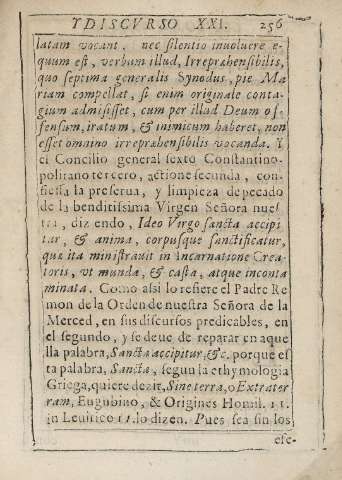 YDISCVRSO XXI. 256
latam vocant, nec silentio involuere e-
quum est, verbum illud, Irrepræhensibilis,
quo septima generalis Synodus, pie Ma
riam compellat, si enim originale conta-
gium admisisset, cum per illud Deum of-
fensum, iratum, & inimicum haberet, non
esset omnino irrepræhensibilis vocanda. Y
el Concilio general sexto Constantino-
politano tercero, actione secunda, con-
fiessa la preserua, y limpieza de pecado
de la benditissima Virgen Señora nues
tra, diziendo, Ideo Virgo sancta accipi
tur, & anima, corpusque sanctificatur,
quæ ita ministrauit in Incarnatione Crea
toris, vt munda, & casta, atque inconta
minata. Como assi lo refiere el Padre Re
mon de la Orden de nuestra Señora de la
Merced, en sus discursos predicables, en
el segundo, y se deue de reparar en aque
lla palabra, Sancta accipitur, &c. porque es
ta palabra, Sancta, segun la ethymologia
Griega, quiere dezir, Sine terra, o Extrater
ram, Eugubino, & Origines Homil. 11.
in Leuitico 11. lo dizen. Pues sea sin los
efe-